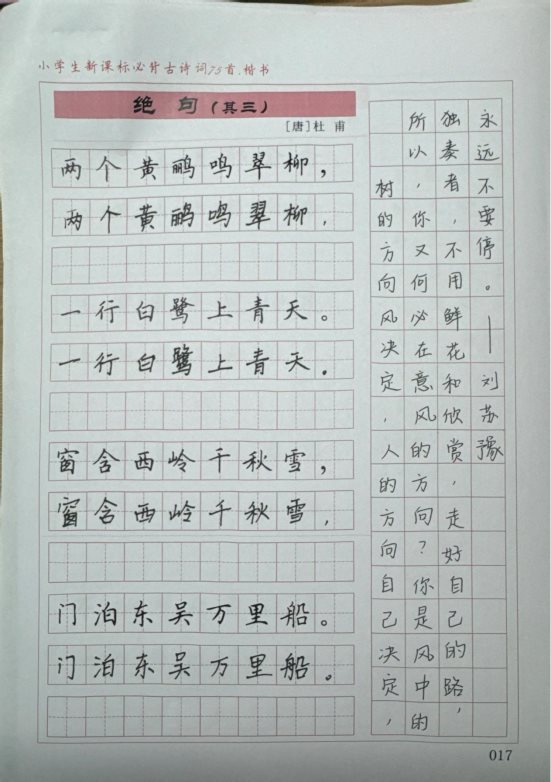 小学生新课标必背古诗词75首.楷书
绝句（其三）
［唐］杜甫
两个黄鹂鸣翠柳，
两个黄鹂鸣翠柳，
一行白鹭上青天。
一行白鹭上青天。
窗含西岭千秋雪，
窗含西岭千秋雪，
门泊东吴万里船。
门泊东吴万里船。
树的方向风决定，人的方向自己决定，
所以，你又何必在意风的方向？你是风中的
独奏者，不用鲜花和欣赏，走好自己的路，
永远不要停。——刘苏豫
017